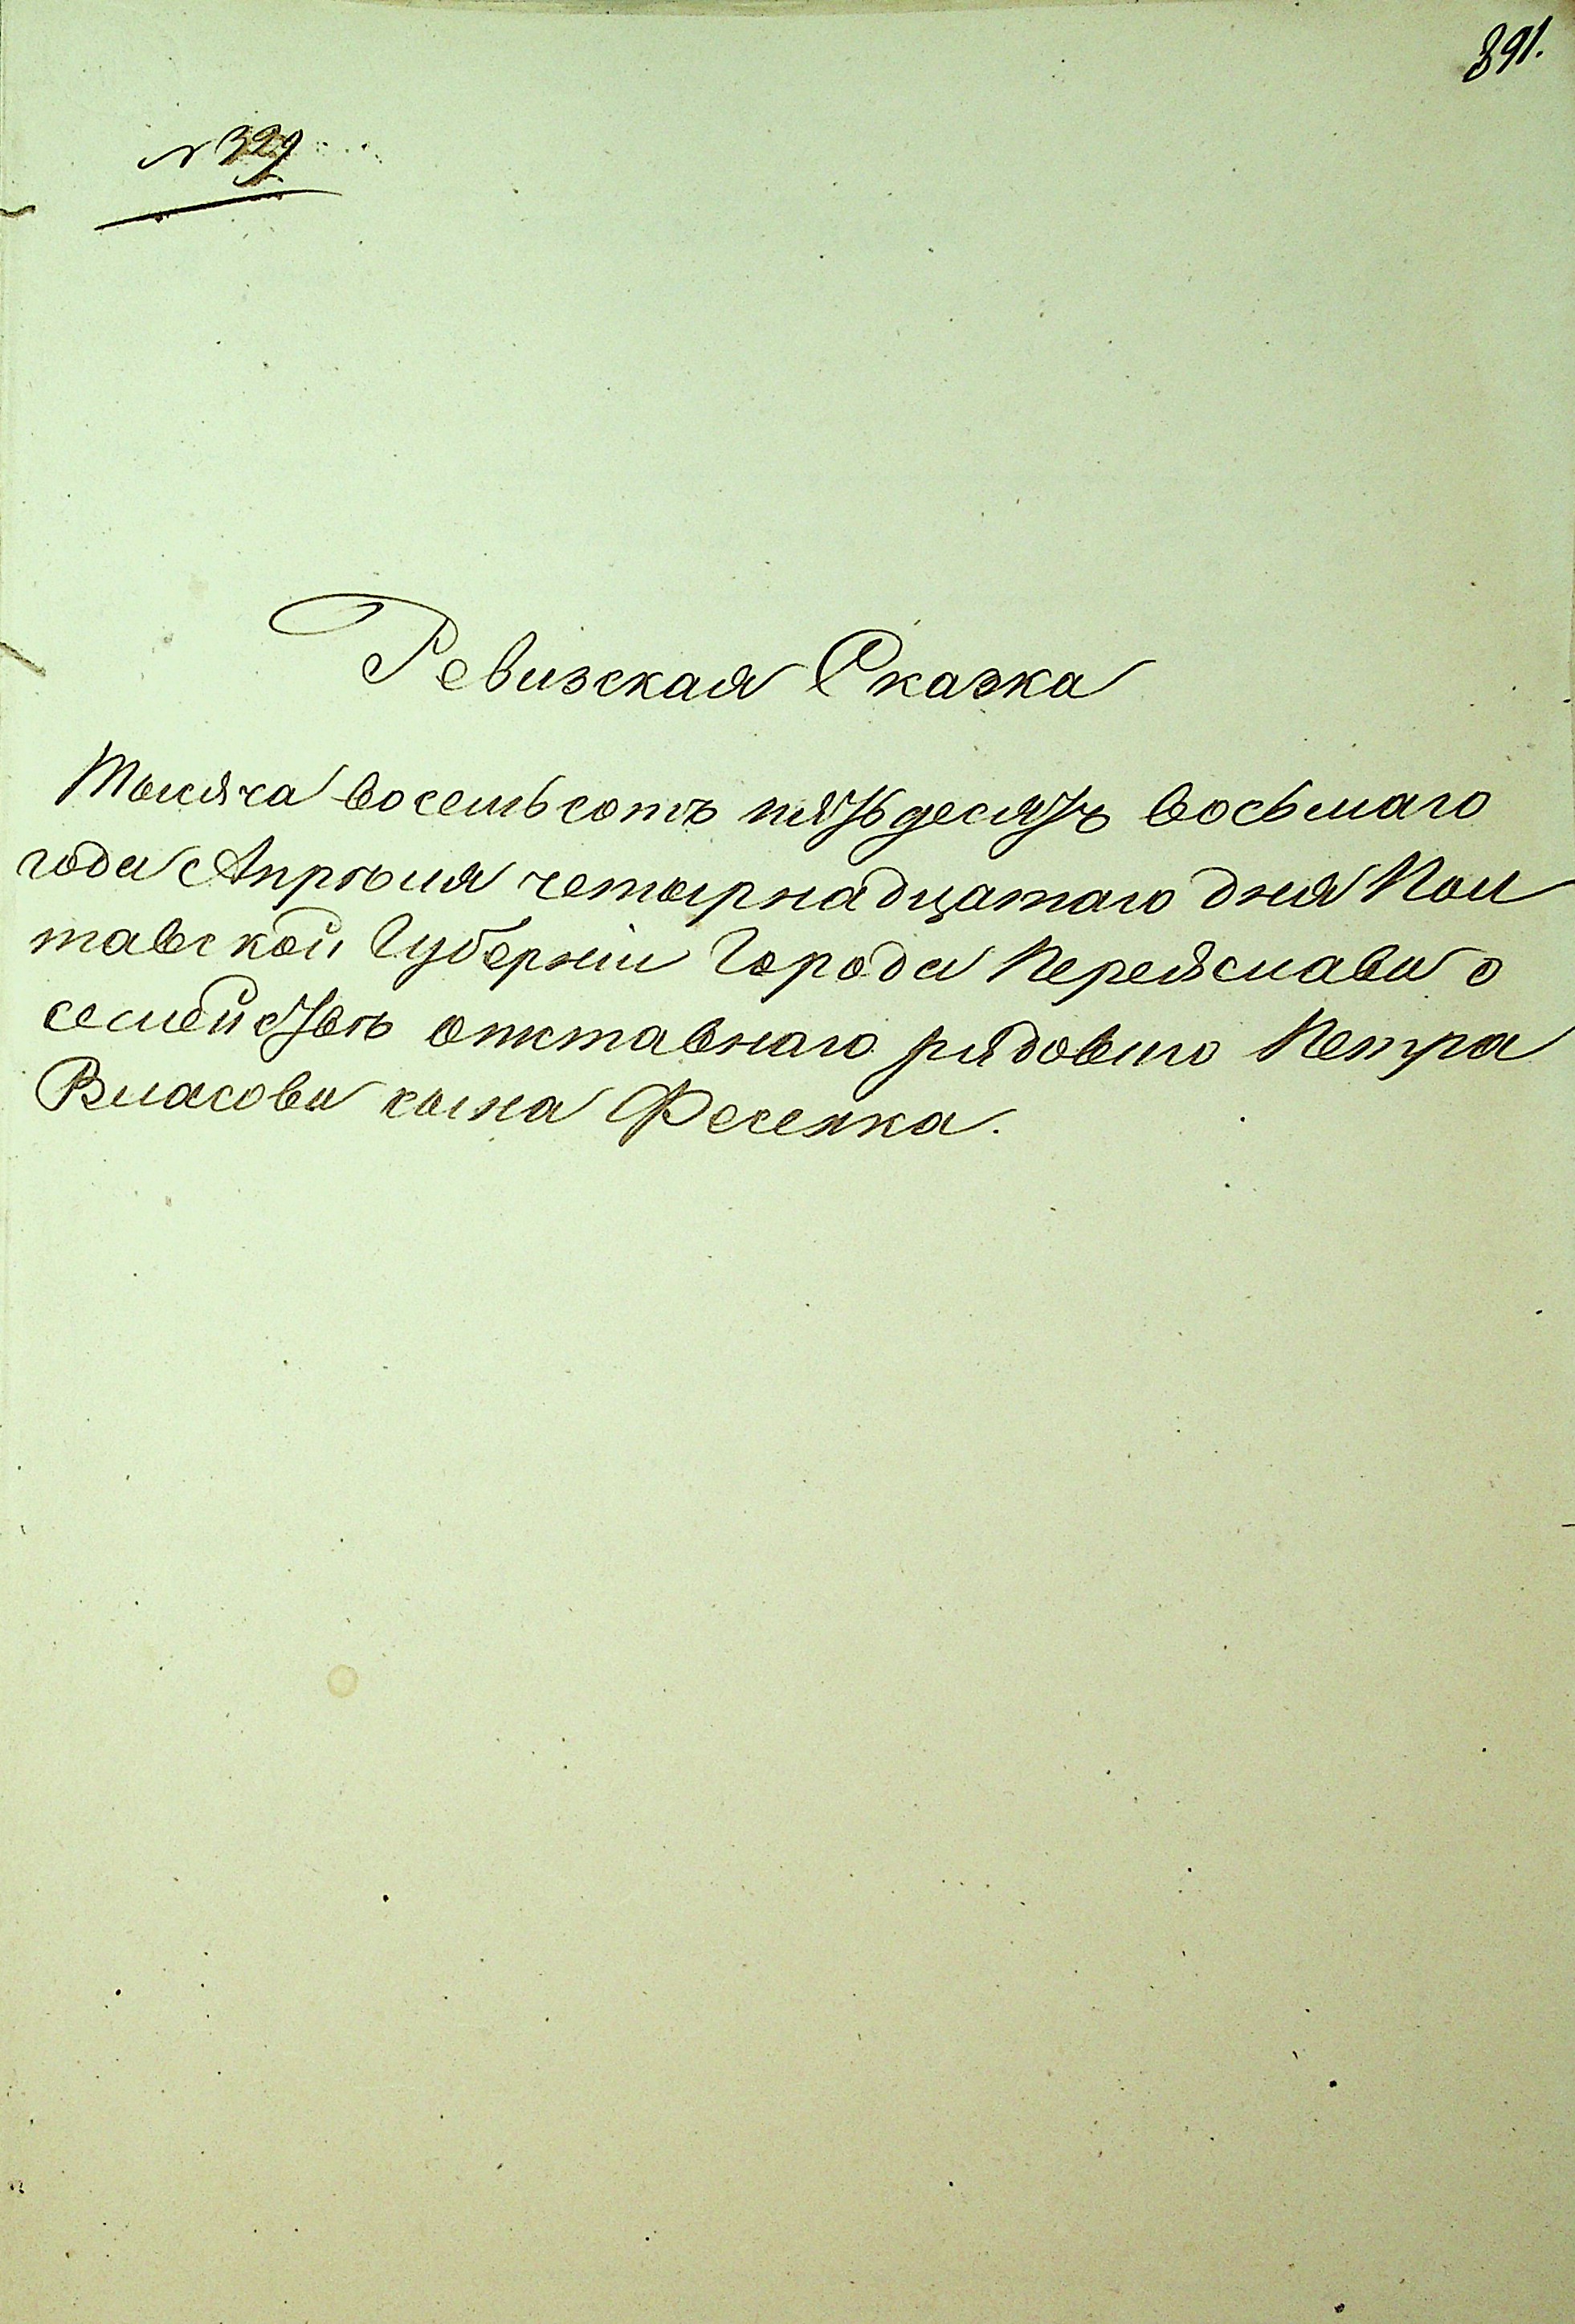 391.
№ 329
Ревизская Сказка
Тысяча восемьсотъ пятьдесятъ восьмаго
года Апрѣля четырнадцатаго дня Пол
тавской Губерніи Города Переяслава о
семействѣ отставнаго рядоваго Петра
Власова сына Фесенка.